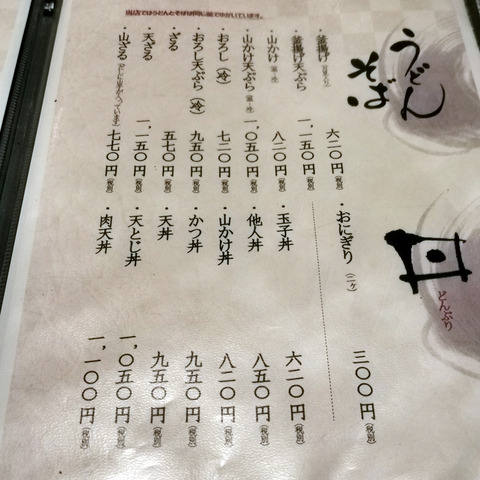 うどん
そば
・釜揚げ 六二〇円(税別)
・釜揚げ天ぷら 一、一五〇円(税別)
・山かけ 八二〇円(税別)
・山かけ天ぷら 一、〇五〇円(税別)
・おろし(冷) 七二〇円(税別)
・おろし天ぷら(冷) 九五〇円(税別)
・ざる 五七〇円(税別)
・天ざる 一、一五〇円(税別)
・山ざる 七七〇円(税別)
当店ではうどんとそばは同じ釜でゆがいています。
丼
どんぶり
・おにぎり(二ケ) 三〇〇円(税別)
・玉子丼 六二〇円(税別)
・他人丼 八五〇円(税別)
・山かけ丼 八二〇円(税別)
・かつ丼 九五〇円(税別)
・天丼 九五〇円(税別)
・天とじ丼 一、〇五〇円(税別)
・肉天丼 一、一〇〇円(税別)